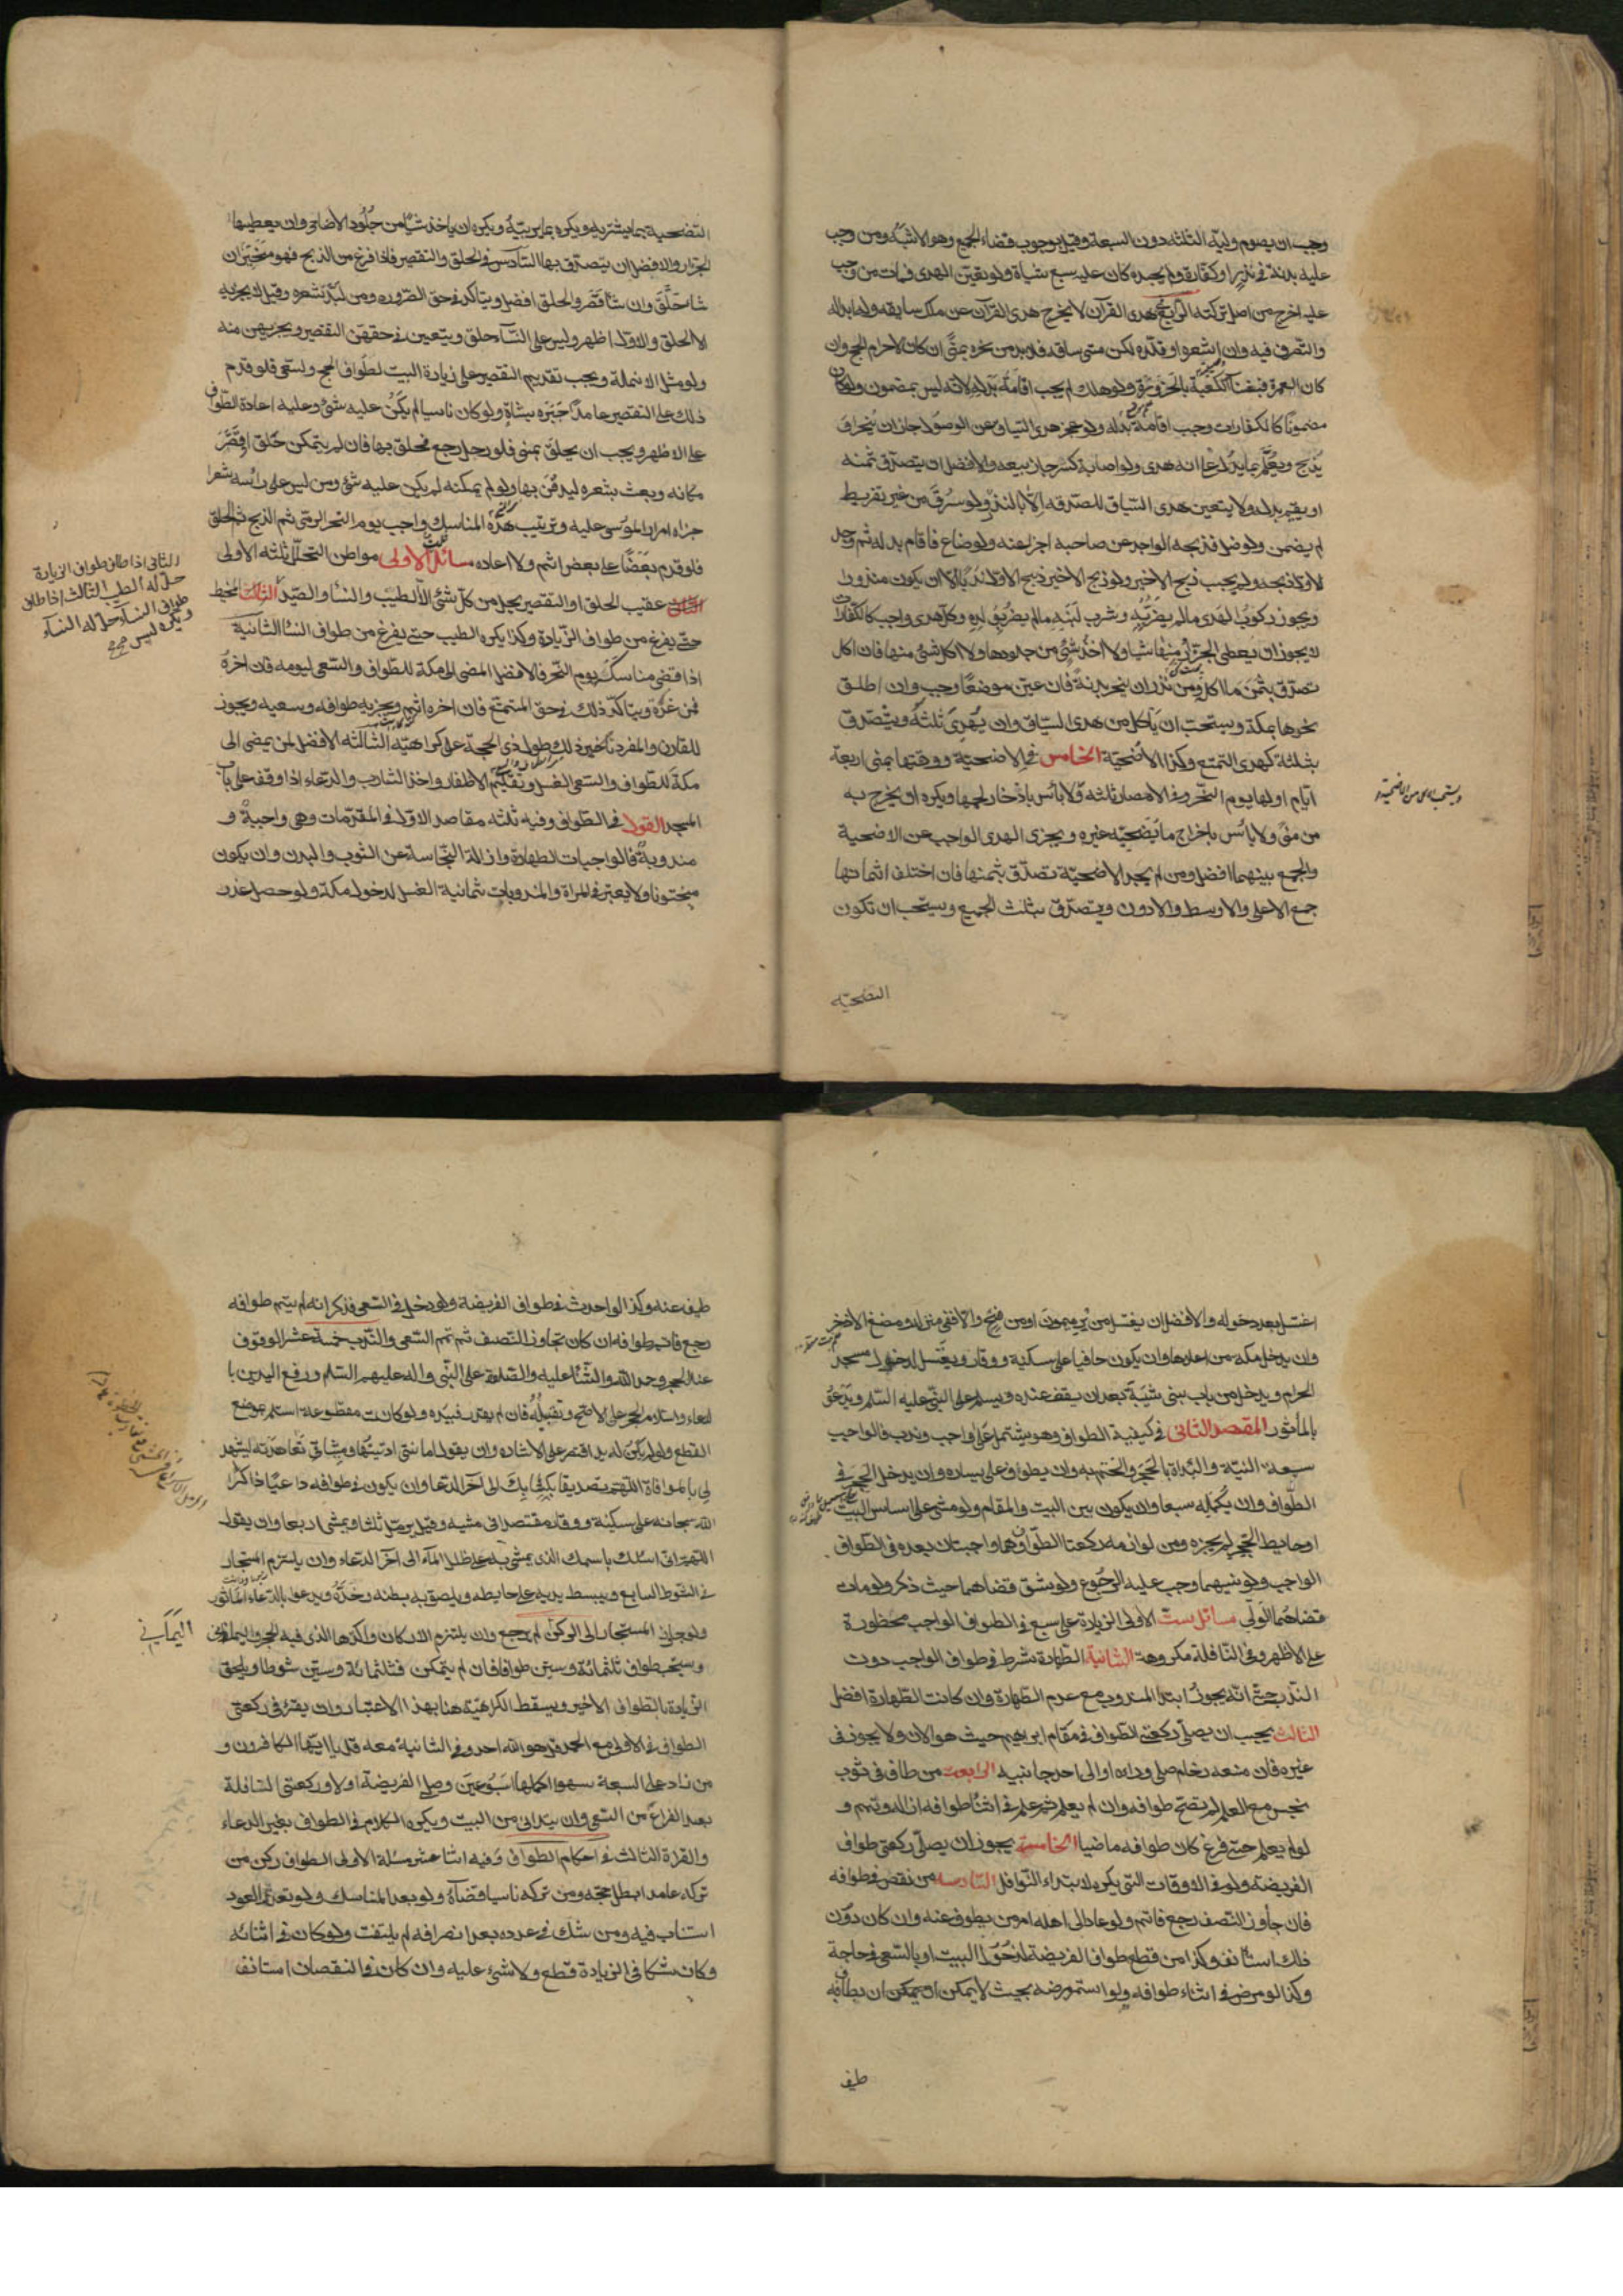 وجب ان يصوم وليه الثلثة دون السبعة وقيل بوجوب قضاء الجميع وهو الاشبه ومن وجب
عليه بدنة في نذر او كفارة ولم يجد كان عليه سبع شياة ولو تعين الهدى فمات من وجب
عليه اخرج من اصل تركته الرابع في هدى القران لا يخرج هدى القران عن ملك سايقه وله ابداله
والتصرف فيه وان اشعره او قلده لكن متى ساقه فلا بد من نحره بمنى ان كان لاحرام الحج وان
كان للعمرة فبفناء الكعبة بالحزورة ولو هلك لم يجب اقامة بدله لانه ليس بمضمون ولو كان
مضمونا كالكفارات وجب اقامة بدله ولو عجز هدى السياق عن الوصول جاز ان ينحر او
يذبح ويعلم بما يدل على انه هدى ولو اصابه كسر جاز بيعه والافضل ان يتصدق بثمنه
او يقيم بدله ولا يتعين هدى السياق للصدقه الا بالنذر ولو سرق من غير تفريط
لم يضمن ولو ضل فذبحه الواجد عن صاحبه اجزا عنه ولو ضاع فاقام بدله ثم وجد
الاول ذبحه ولم يجب ذبح الاخير ولو ذبح الاخير ذبح الاول ندبا الا ان يكون منذورا
ويجوز ركوب الهدى ما لم يضر به وشرب لبنه ما لم يضر بولده وكل هدى واجب كالكفارات
لا يجوز ان يعطى الجزار منها شيا ولا اخذ شئ من جلودها ولا اكل شئ منها فان اكل
تصدق بثمن ما اكل ومن نذر ان ينحر بدنة فان عين موضعا وجب وان اطلق
نحرها بمكة ويستحب ان ياكل من هدى السياق وان يهدى ثلثه ويتصدق
بثلثه كهدى التمتع وكذا الاضحية الخامس في الاضحية ووقتها بمنى اربعة
ايام اولها يوم النحر وفي الامصار ثلثه ولا بأس بادخار لحمها ويكره ان يخرج به
من منى ولا بأس باخراج ما يضحيه غيره ويجزى الهدى الواجب عن الاضحية
والجمع بينهما افضل ومن لم يجد الاضحية تصدق بثمنها فان اختلف اثمانها
جمع الاعلى والاوسط والادون ويتصدق بثلث الجميع ويستحب ان تكون
التضحية
التضحية بما يشتريه ويكره بما يربيه ويكره ان ياخذ شيا من جلود الاضاحى وان يعطيها
الجزار والافضل ان يتصدق بها السادس في الحلق والتقصير فاذا فرغ من الذبح فهو مخير ان
شا حلق وان شا قصر والحلق افضل ويتاكد في حق الصروره ومن لبد شعره وقيل لا يجزيه
الا الحلق والاول اظهر وليس على النسآ حلق ويتعين في حقهن التقصير ويجزيهن منه
ولو مثل الانملة ويجب تقديم التقصير على زيارة البيت لطواف الحج والسعى فلو قدم
ذلك على التقصير عامدا جبره بشاة ولو كان ناسيا لم يكن عليه شئ وعليه اعادة الطواف
على الاظهر ويجب ان يحلق بمنى فلو رحل رجع فحلق بها فان لم يتمكن حلق او قصر
مكانه وبعث بشعره ليدفن بها ولو لم يمكنه لم يكن عليه شئ ومن ليس على رأسه شعر
اجزاه امرار الموسى عليه وترتيب هذه المناسك واجب يوم النحر الرمى ثم الذبح ثم الحلق
فلو قدم بعضا على بعض اثم ولا اعاده مسائل ثلث الاولى مواطن التحلل ثلثه الاولى
عقيب الحلق او التقصير يحل من كل شئ الا الطيب والنسا والصيد المخيط
حتى يفرغ من طواف الزيادة وكذا يكره الطيب حتى يفرغ من طواف النسا الثانية
اذا قضى مناسك يوم النحر فالافضل المضى الى مكة للطواف والسعى ليومه فان اخره
فمن غده ويتاكد ذلك في حق المتمتع فان اخره اثم ويجزيه طوافه وسعيه ويجوز
للقارن والمفرد تاخير ذلك طول ذى الحجة على كراهيه الثالثه الافضل لمن يمضى الى
مكة للطواف والسعى الغسل وتقليم الاظفار واخذ الشارب والدعاء اذا وقف على باب
المسجد القول في الطواف وفيه ثلثه مقاصد الاول في المقدمات وهى واجبة و
مندوبة فالواجبات الطهارة وازالة النجاسة عن الثوب والبدن وان يكون
مختونا ولا يعتبر في المراة والمندوبات ثمانية الغسل لدخول مكة ولو حصل عذر
الثانى اذا طاف طواف الزيارة
حل له الطيب الثالث اذا طاف
طواف النسآ حل له النسآ
ويكره لبس
اغتسل بعد دخوله والافضل ان يغتسل من بير ميمون او من فخ والا ففي منزله ومضغ الاذخر
وان يدخل مكه من اعلاها وان يكون حافيا على سكينة ووقار ويغتسل لدخول مسجد
الحرام ويدخل من باب بنى شيبة بعد ان يقف عنده ويسلم على النبى عليه السلم ويدعو
بالمأثور المقصد الثانى في كيفية الطواف وهو يشتمل على واجب وندب فالواجب
سبعة النية والبداة بالحجر والختم به وان يطوف على يساره وان يدخل الحجر في
الطواف وان يكمله سبعا وان يكون بين البيت والمقام ولو مشى على اساس البيت
او حايط الحجر لم يجزه ومن لوازمه ركعتا الطواف وهما واجبتان بعده في الطواف
الواجب ولو نسيهما وجب عليه الرجوع ولو شق قضاهما حيث ذكر ولو مات
قضاهما الولى مسائل ست الاولى الزيادة على سبع في الطواف الواجب محظورة
على الاظهر وفي النافلة مكروهة الثانية الطهارة شرط في طواف الواجب دون
الندب حتى انه يجوز ابتدا المندوب مع عدم الطهارة وان كانت الطهارة افضل
الثالث يجب ان يصلى ركعتى الطواف في مقام ابرهيم حيث هو الان ولا يجوز في
غيره فان منعه زحام صلى وراه او الى احد جانبيه الرابعة من طاف في ثوب
نجس مع العلم لم يصح طوافه وان لم يعلم ثم علم في اثنا طوافه ازاله وتمم و
لو لم يعلم حتى فرغ كان طوافه ماضيا الخامسة يجوز ان يصلى ركعتى طواف
الفريضة ولو في الاوقات التى يكره لابتداء النوافل السادسة من نقص في طوافه
فان جاوز النصف رجع فاتم ولو عاد الى اهله امر من يطوف عنه وان كان دون
ذلك استانف وكذا من قطع طواف الفريضة لدخول البيت او بالسعى في حاجة
وكذا لو مرض في اثناء طوافه ولو استمر مرضه بحيث لا يمكن ان يطاف به
طيف
طيف عنه وكذا لو احدث في طواف الفريضة ولو دخل في السعى فذكر انه لم يتم طوافه
رجع فاتم طوافه ان كان تجاوز النصف ثم تمم السعى والندب خمسة عشر الوقوف
عند الحجر وحمد الله والثنا عليه والصلوة على النبى واله عليهم السلم ورفع اليدين با
لدعاء واستلام الحجر على الاصح وتقبيله فان لم يقدر فبيده ولو كانت مقطوعة استلم بموضع
القطع ولو لم يكن له يد اقتصر على الاشاره وان يقول امانتى اديتها وميثاقى تعاهدته ليشهد
لى بالموافاة اللهم تصديقا بكتابك الى اخر الدعا وان يكون في طوافه داعيا ذاكرا
لله سبحانه على سكينة ووقار مقتصدا في مشيه وقيل يرمل ثلثا ويمشى اربعا وان يقول
اللهم انى اسئلك باسمك الذى يمشى به على ظلل المآء الى اخر الدعاء وان يلتزم المستجار
في الشوط السابع ويبسط يديه على حايطه ويلصق به بطنه وخده ويدعو بالدعاء الماثور
ولو جاوز المستجار الى الركن لم يرجع وان يلتزم الاركان واكدها الذى فيه الحجر واليمانى
ويستحب طواف ثلثمائة وستين طوافا فان لم يتمكن فثلثمائة وستين شوطا ويلحق
الزيادة بالطواف الاخير ويسقط الكراهية هنا بهذا الاعتبار وان يقرء في ركعتى
الطواف في الاولى مع الحمد قل هو الله احد وفي الثانية معه قل يا ايها الكافرون و
من زاد على السبعة سهوا اكملها اسبوعين وصلى الفريضة اولا وركعتى النافلة
بعد الفراغ من السعى وان يتدانى من البيت ويكره الكلام في الطواف بغير الدعاء
والقراة الثالث في احكام الطواف وفيه اثنا عشر مسئلة الاولى الطواف ركن من
تركه عامدا بطل حجه ومن تركه ناسيا قضاه ولو بعد المناسك ولو تعذر العود
استناب فيه ومن شك في عدده بعد انصرافه لم يلتفت ولو كان في اثنائه
وكان شكا في الزيادة قطع ولا شئ عليه وان كان في النقصان استانف